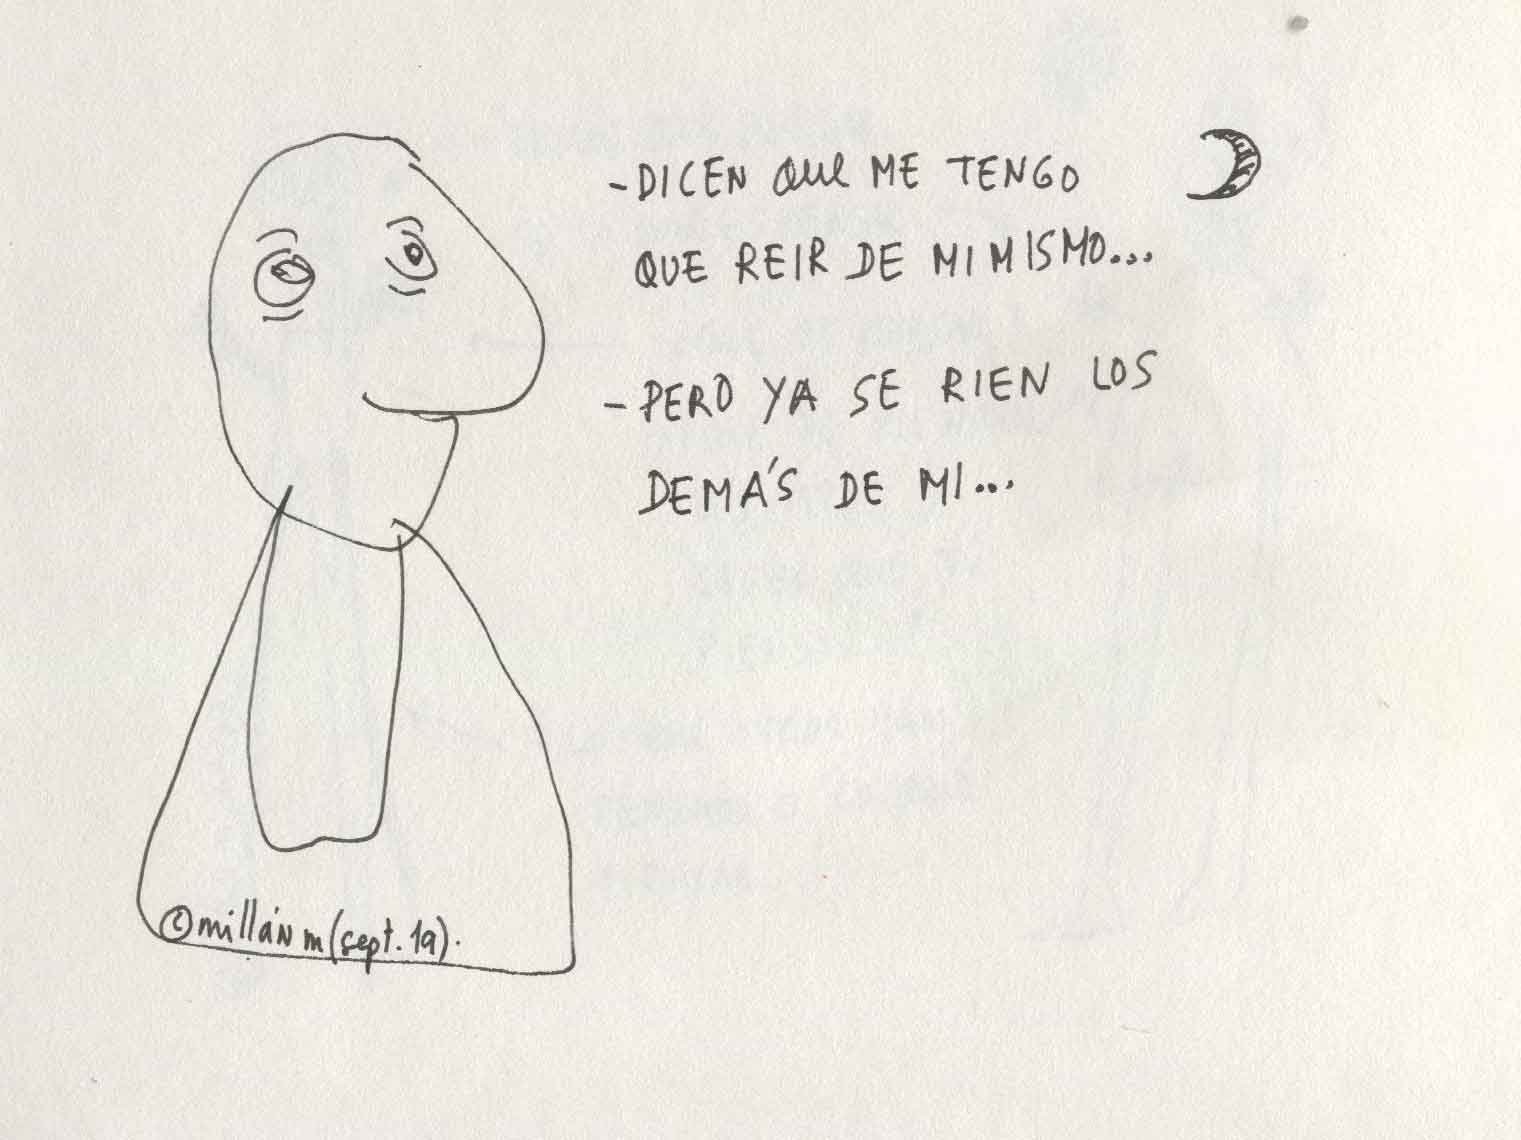 -DICEN QUE ME TENGO
QUE REIR DE MI MISMO...
-PERO YA SE RIEN LOS
DEMÁS DE MI...
©millán m (sept. 19).